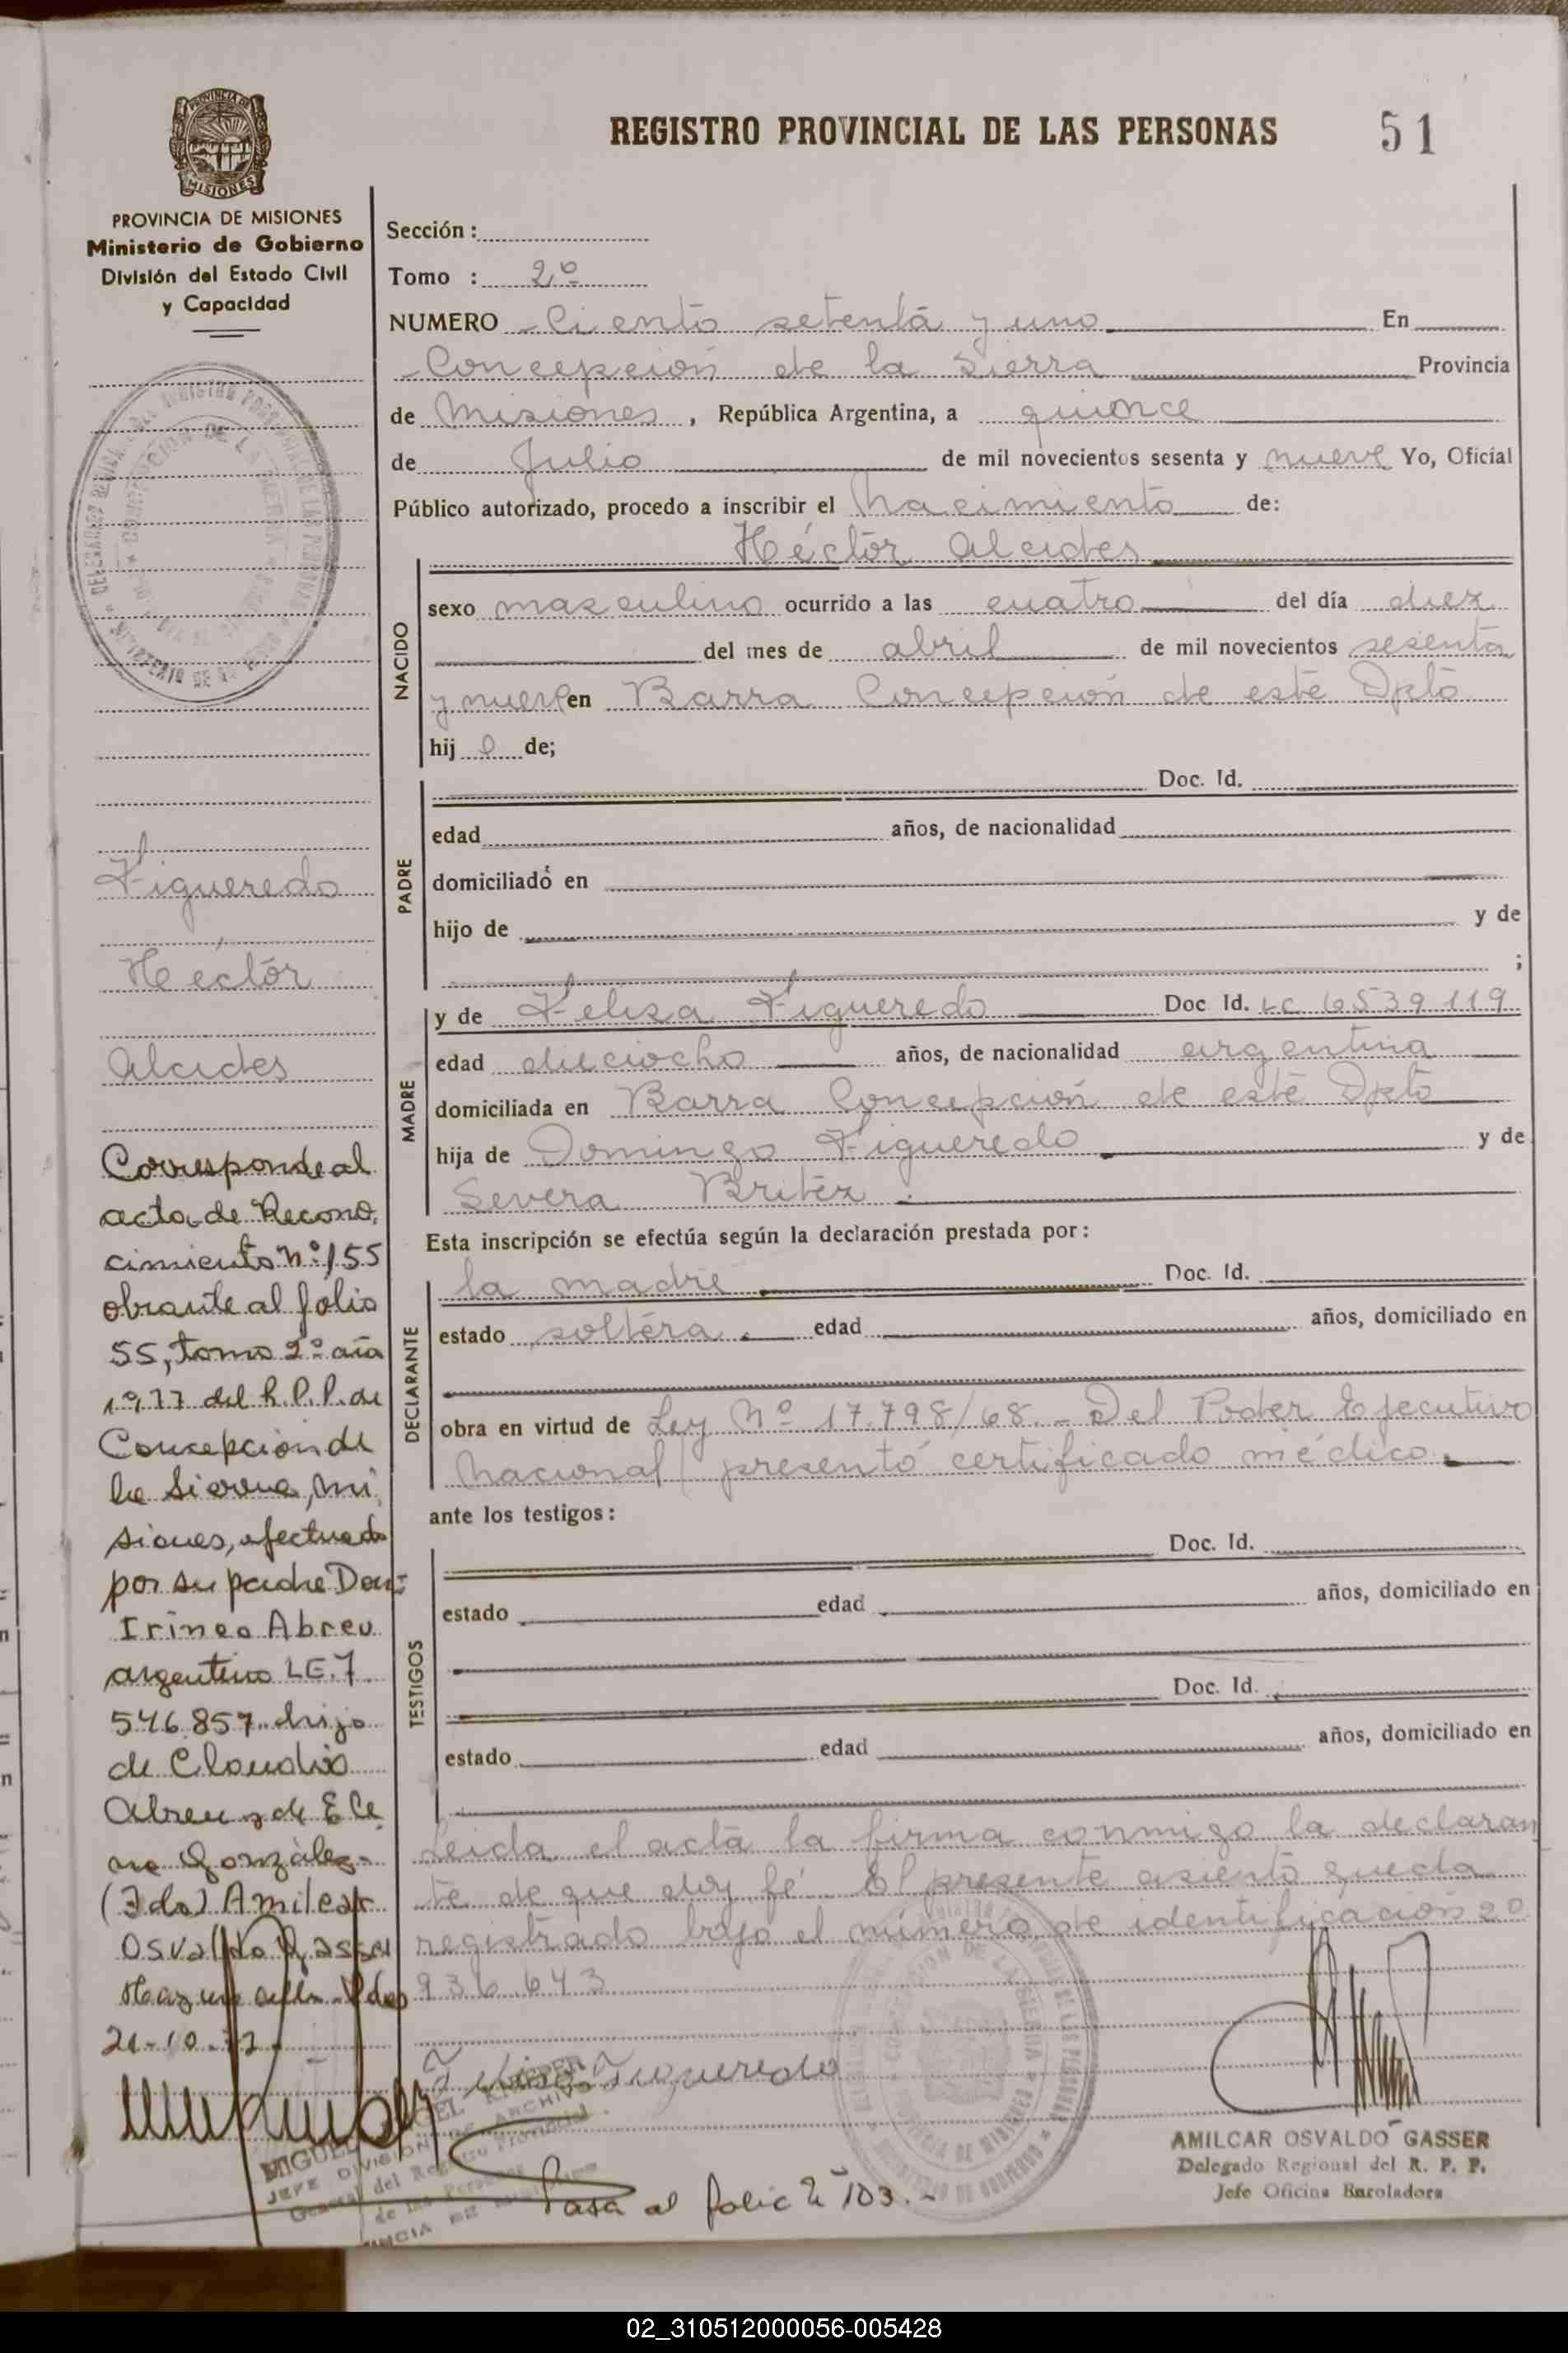 REGISTRO PROVINCIAL DE LAS PERSONAS
51
PROVINCIA DE MISIONES
PROVINCIA DE MISIONES
Ministerio de Gobierno
División del Estado Civil
y Capacidad
Figueredo
Héctor
Alcides
Corresponde al
acta de Recono
cimiento Nº 155
obrante al folio
55, tomo 2º año
1977 del R.P.P. de
Concepción de
la Sierra, Mi
siones, efectuado
por su padre Don:
Irineo Abreu
argentino LE. 7
546.857. hijo
de Claudio
Abreu y de Ele
na González-
(Fdo) Amilcar
Osvaldo Gasser
21-10-77
MIGUEL ANGEL
JEFE DIVISION ARCHIVO
General del Registro Provincial
de las Personas
Sección :
Tomo : 2º
NUMERO - Ciento setenta y uno En
- Concepción de la Sierra Provincia
de Misiones, República Argentina, a quince
de Julio de mil novecientos sesenta y nueve Yo, Oficial
Público autorizado, procedo a inscribir el Nacimiento de:
Héctor Alcides
NACIDO
sexo masculino ocurrido a las cuatro del día diez
del mes de abril de mil novecientos sesenta
y nueve en Barra Concepción de este Dpto
hij o de;
PADRE
Doc. Id.
edad años, de nacionalidad
domiciliado en
hijo de y de
;
MADRE
y de Felisa Figueredo Doc Id. LC 6539.119
edad dieciocho años, de nacionalidad argentina
domiciliada en Barra Concepción de este Dpto
hija de Domingo Figueredo y de
Severa Britez
Esta inscripción se efectúa según la declaración prestada por:
DECLARANTE
la madre Doc. Id.
estado soltera. edad años, domiciliado en
obra en virtud de Ley Nº 17.798/68.- Del Poder Ejecutivo
Nacional presentó certificado médico.
ante los testigos:
TESTIGOS
Doc. Id.
estado edad años, domiciliado en
Doc. Id.
estado edad años, domiciliado en
Leida el acta la firma conmigo la declaran
te de que doy fé. El presente asiento queda
registrado bajo el número de identificación 20
936.643
Felisa Figueredo
Pasa al folio Nº 103.-
AMILCAR OSVALDO GASSER
Delegado Regional del R. P. P.
Jefe Oficina Enroladora
02_310512000056-005428